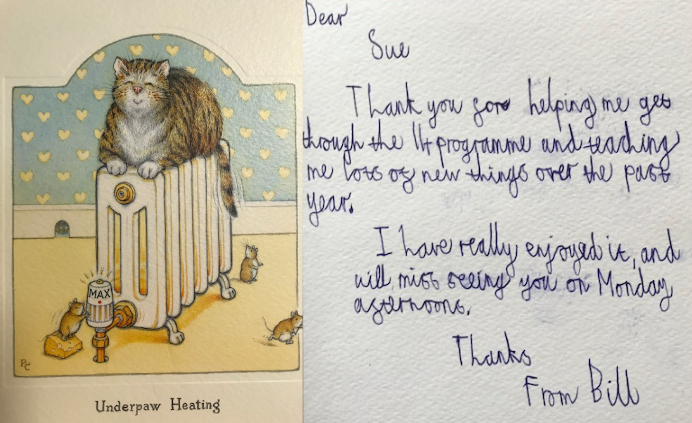 MAX
PC
Underpaw Heating
Dear
Sue
Thank you for helping me get
through the 1t programme and teaching
me lots of new things over the past
year.
I have really enjoyed it, and
will miss seeing you on Monday
afternoons.
Thanks
From Bill